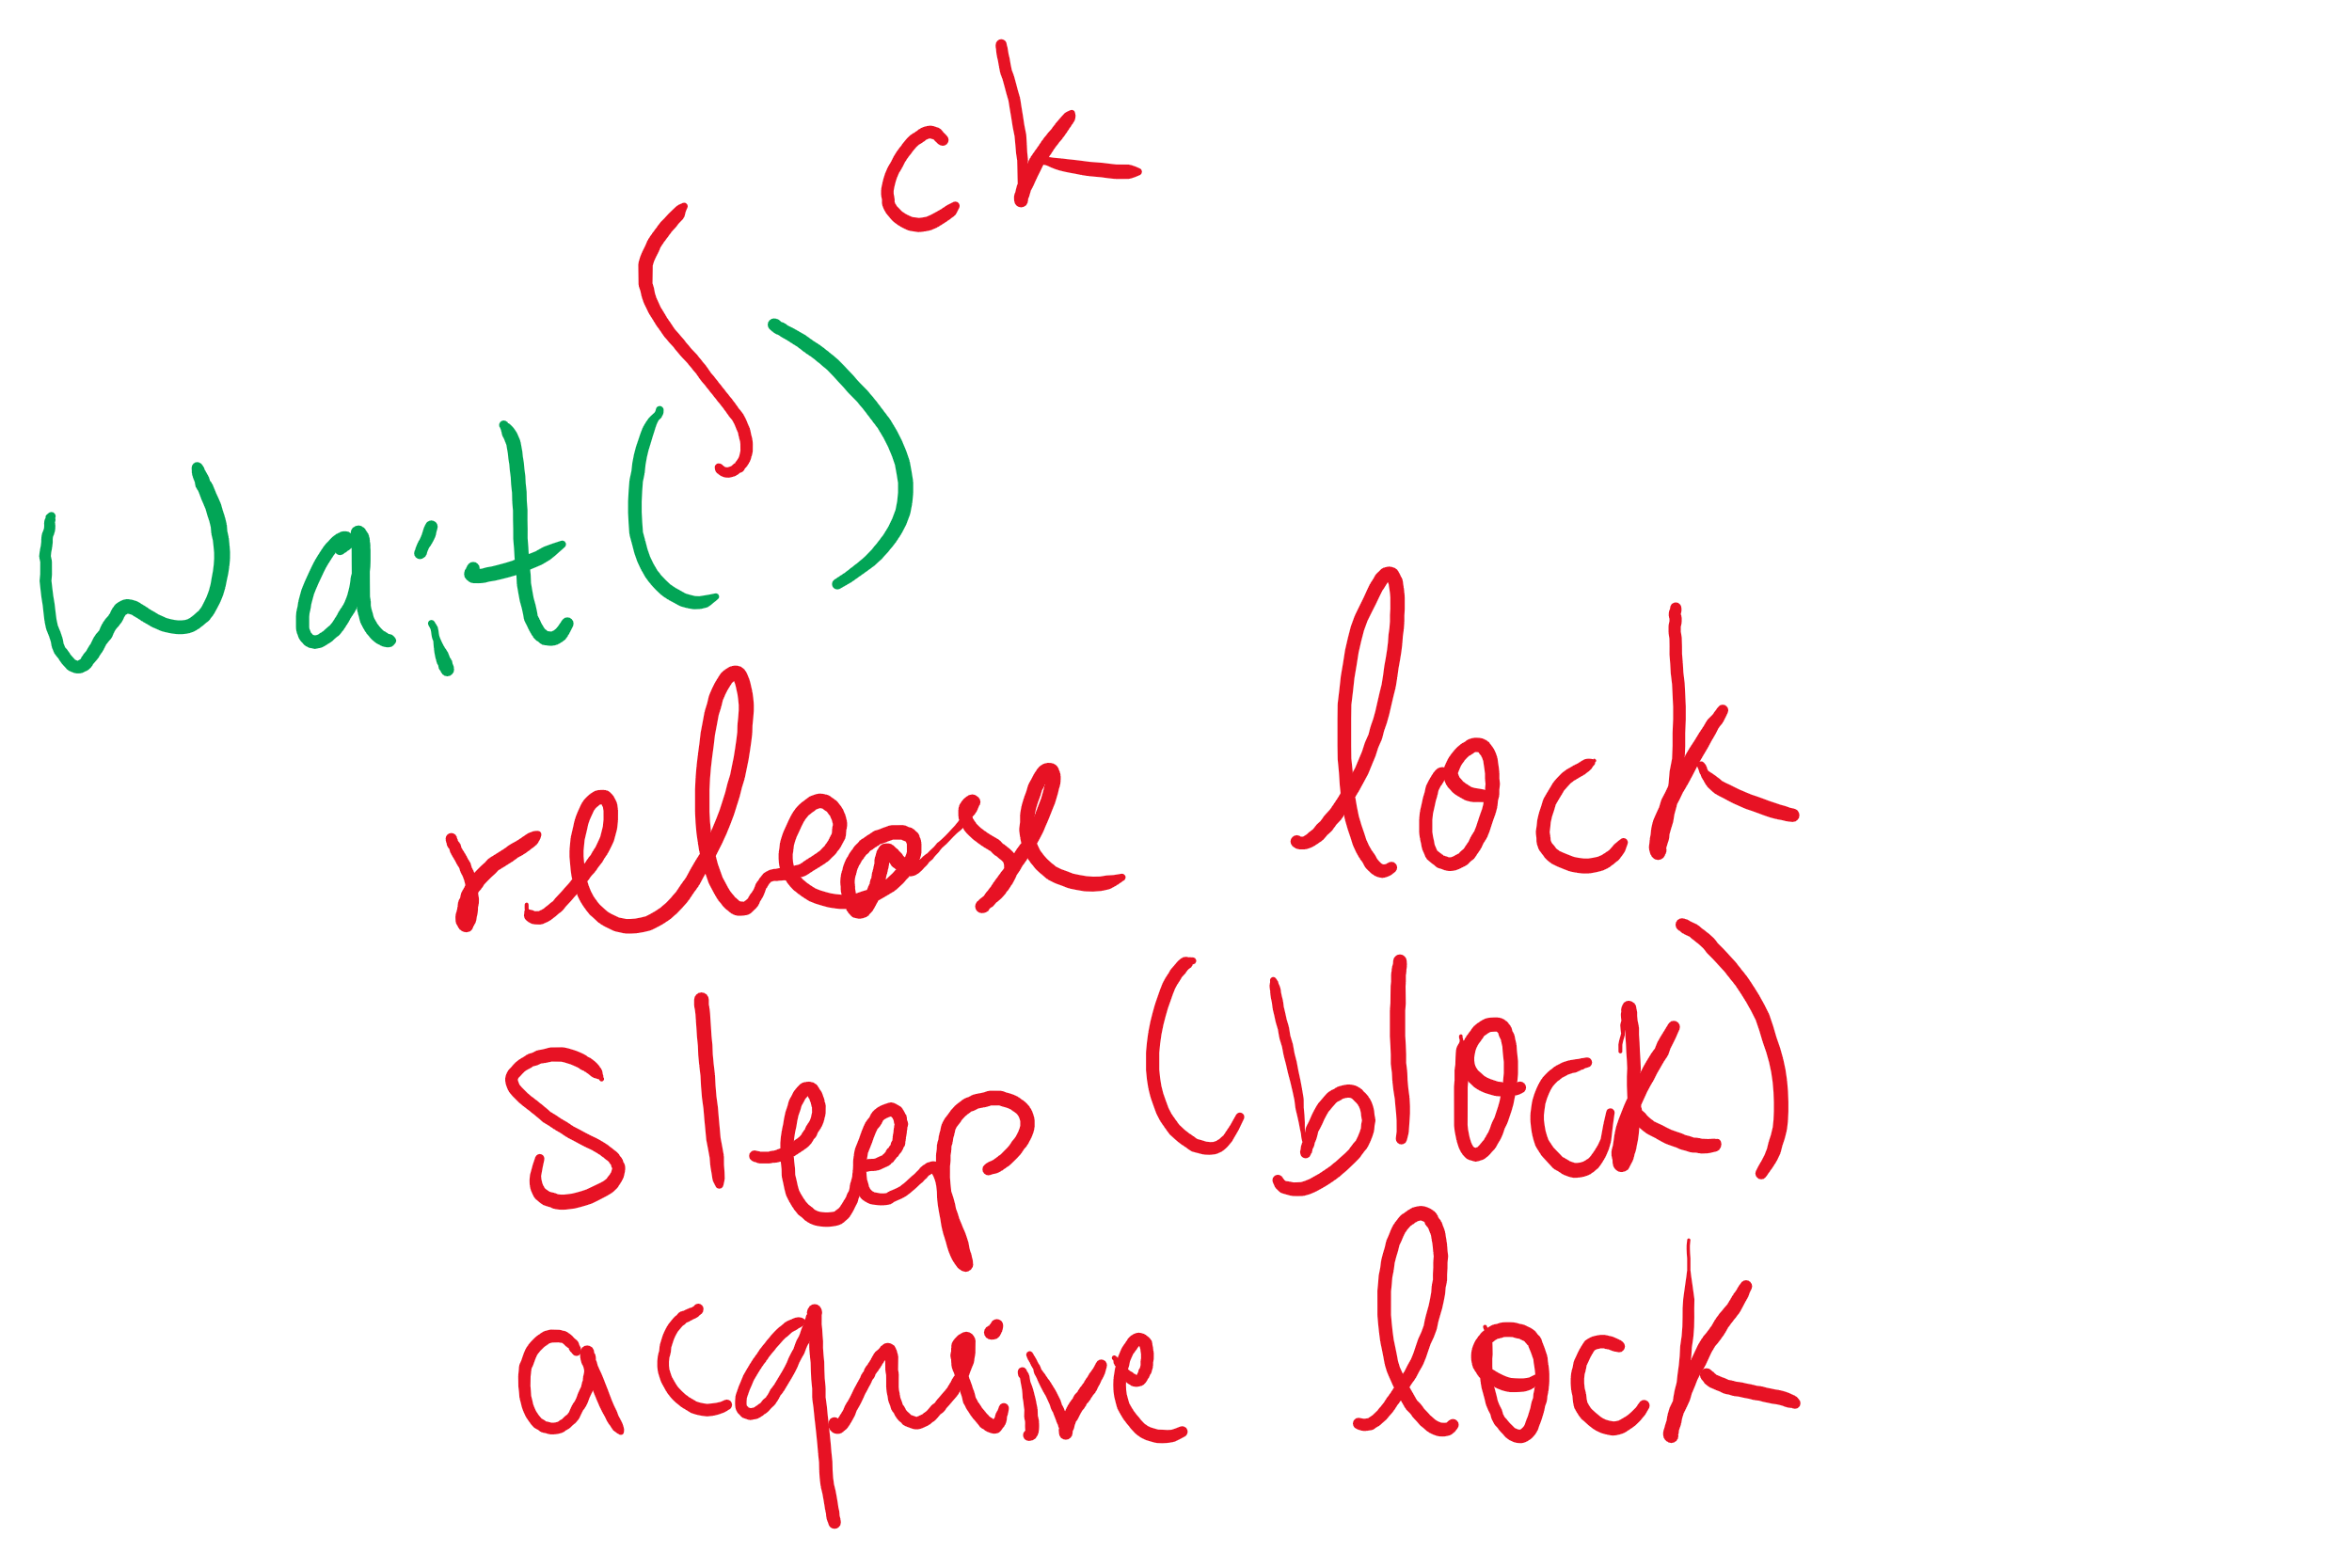 wait(s):
release lock
sleep (block)
acquire lock